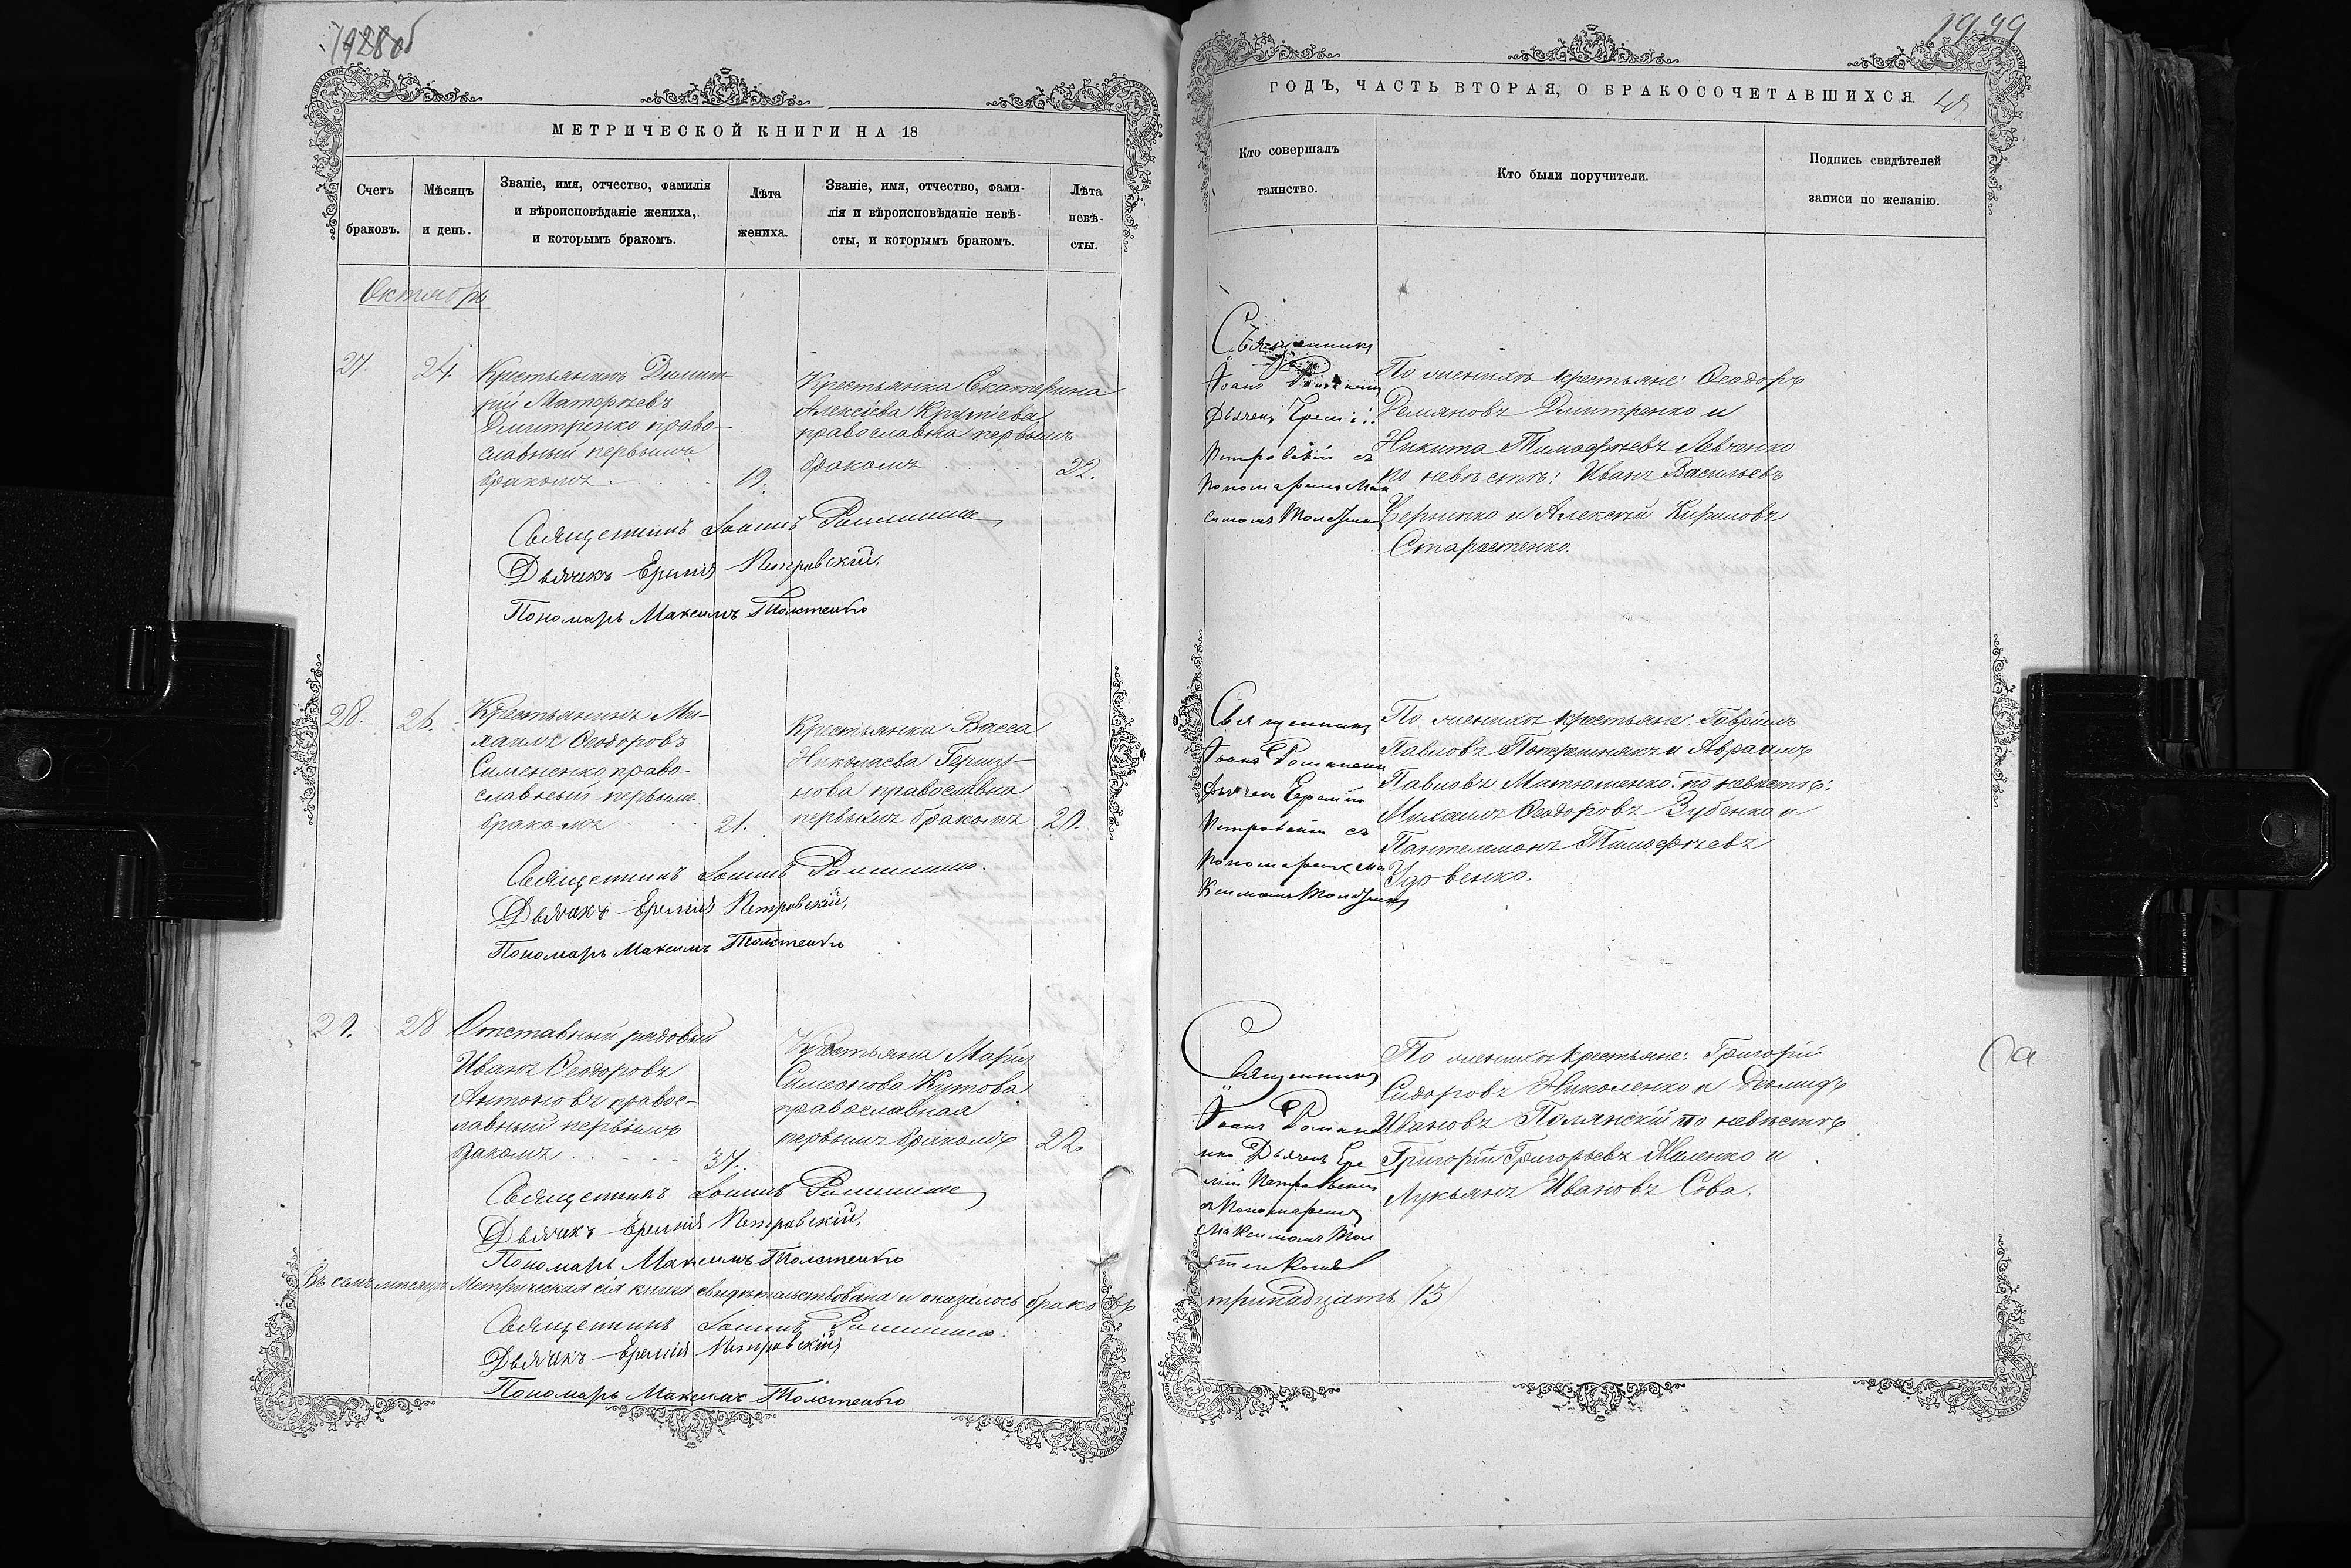 1928об
МЕТРИЧЕСКОЙ КНИГИ НА 18
Счетъ
браковъ.
Мѣсяцъ
и день.
Званіе, имя, отчество, фамилія
и вѣроисповѣданіе жениха,
и которымъ бракомъ.
Лѣта
жениха.
Званіе, имя, отчество, фами-
лія и вѣроисповѣданіе невѣ-
сты, и которымъ бракомъ.
Лѣта
невѣ-
сты.
Октябрь
27.
24.
Крестьянинъ Димит-
рій Матѳеевъ
Дмитренко право-
славный первымъ
бракомъ
19.
Крестьянка Екатерина
Алексіева
православна первымъ
бракомъ
22.
Священникъ Іоаннъ Романенко
Дьячекъ Еремія Петровскій,
Пономарь Максимъ Толстенко
28.
26.
Крестьянинъ Ми-
хаилъ Ѳеодоровъ
Симененко право-
славный первымъ
бракомъ
21.
Крестьянка Васса
Николаева Гергу-
нова православна
первымъ бракомъ
20.
Священникъ Іоаннъ Романенко.
Дьячекъ Еремія Петровскій,
Пономарь Максимъ Толстенко
29.
28.
Отставный рядовый
Иванъ Ѳеодоровъ
Антоновъ правос-
лавный первымъ
бракомъ
37.
Крестьяна Марія
Симеонова Кутова
православная
первымъ бракомъ
22.
Священникъ Іоаннъ Романенко
Дьячекъ Еремія Петровскій,
Пономарь Максимъ Толстенко
Въ семъ мѣсяцѣ Метрическая сія книга свидѣтельствована и оказалось браковъ
Священникъ Іоаннъ Романенко.
Дьячекъ Еремія Петровскій
Пономарь Максимъ Толстенко
1929
ГОДЪ, ЧАСТЬ ВТОРАЯ, О БРАКОСОЧЕТАВШИХСЯ.
Кто совершалъ
таинство.
Кто были поручители.
Подпись свидѣтелей
записи по желанію.
Священникъ
Іоаннъ
Дьячекъ Еремій
Петровскій съ
пономаремъ Мак
симомъ
По женихѣ крестьяне: Ѳеодоръ
Демяновъ Дмитренко и
Никита Тимоѳѣевъ Левченко
по невѣстѣ: Иванъ Васильевъ
Черненко и Алексѣй Кириловъ
Старостенко.
Священникъ
Іоанъ Романенко
Дьячекъ Еремій
Петровскій съ
пономаремъ Ма
ксимомъ
По женихѣ крестьяне: Гавріилъ
Павловъ Поперешнякъ и Авраамъ
Павловъ Матюшенко. по невѣстѣ:
Михаилъ Ѳеодоровъ Зубенко и
Пантелемонъ Тимоѳѣевъ
Удовенко.
Священникъ
Іоанъ Романе
нко Дьячекъ Ере
мій Петровскій
съ Пономаремъ
Максимомъ Тол
стенкомъ
По женихѣ крестьяне: Григорій
Сидоровъ Николенко и Деомидъ
Ивановъ Полянскій по невѣстѣ
Григорій Григорьевъ Жиленко и
Лукьянъ Ивановъ Сова.
тринадцать (13)